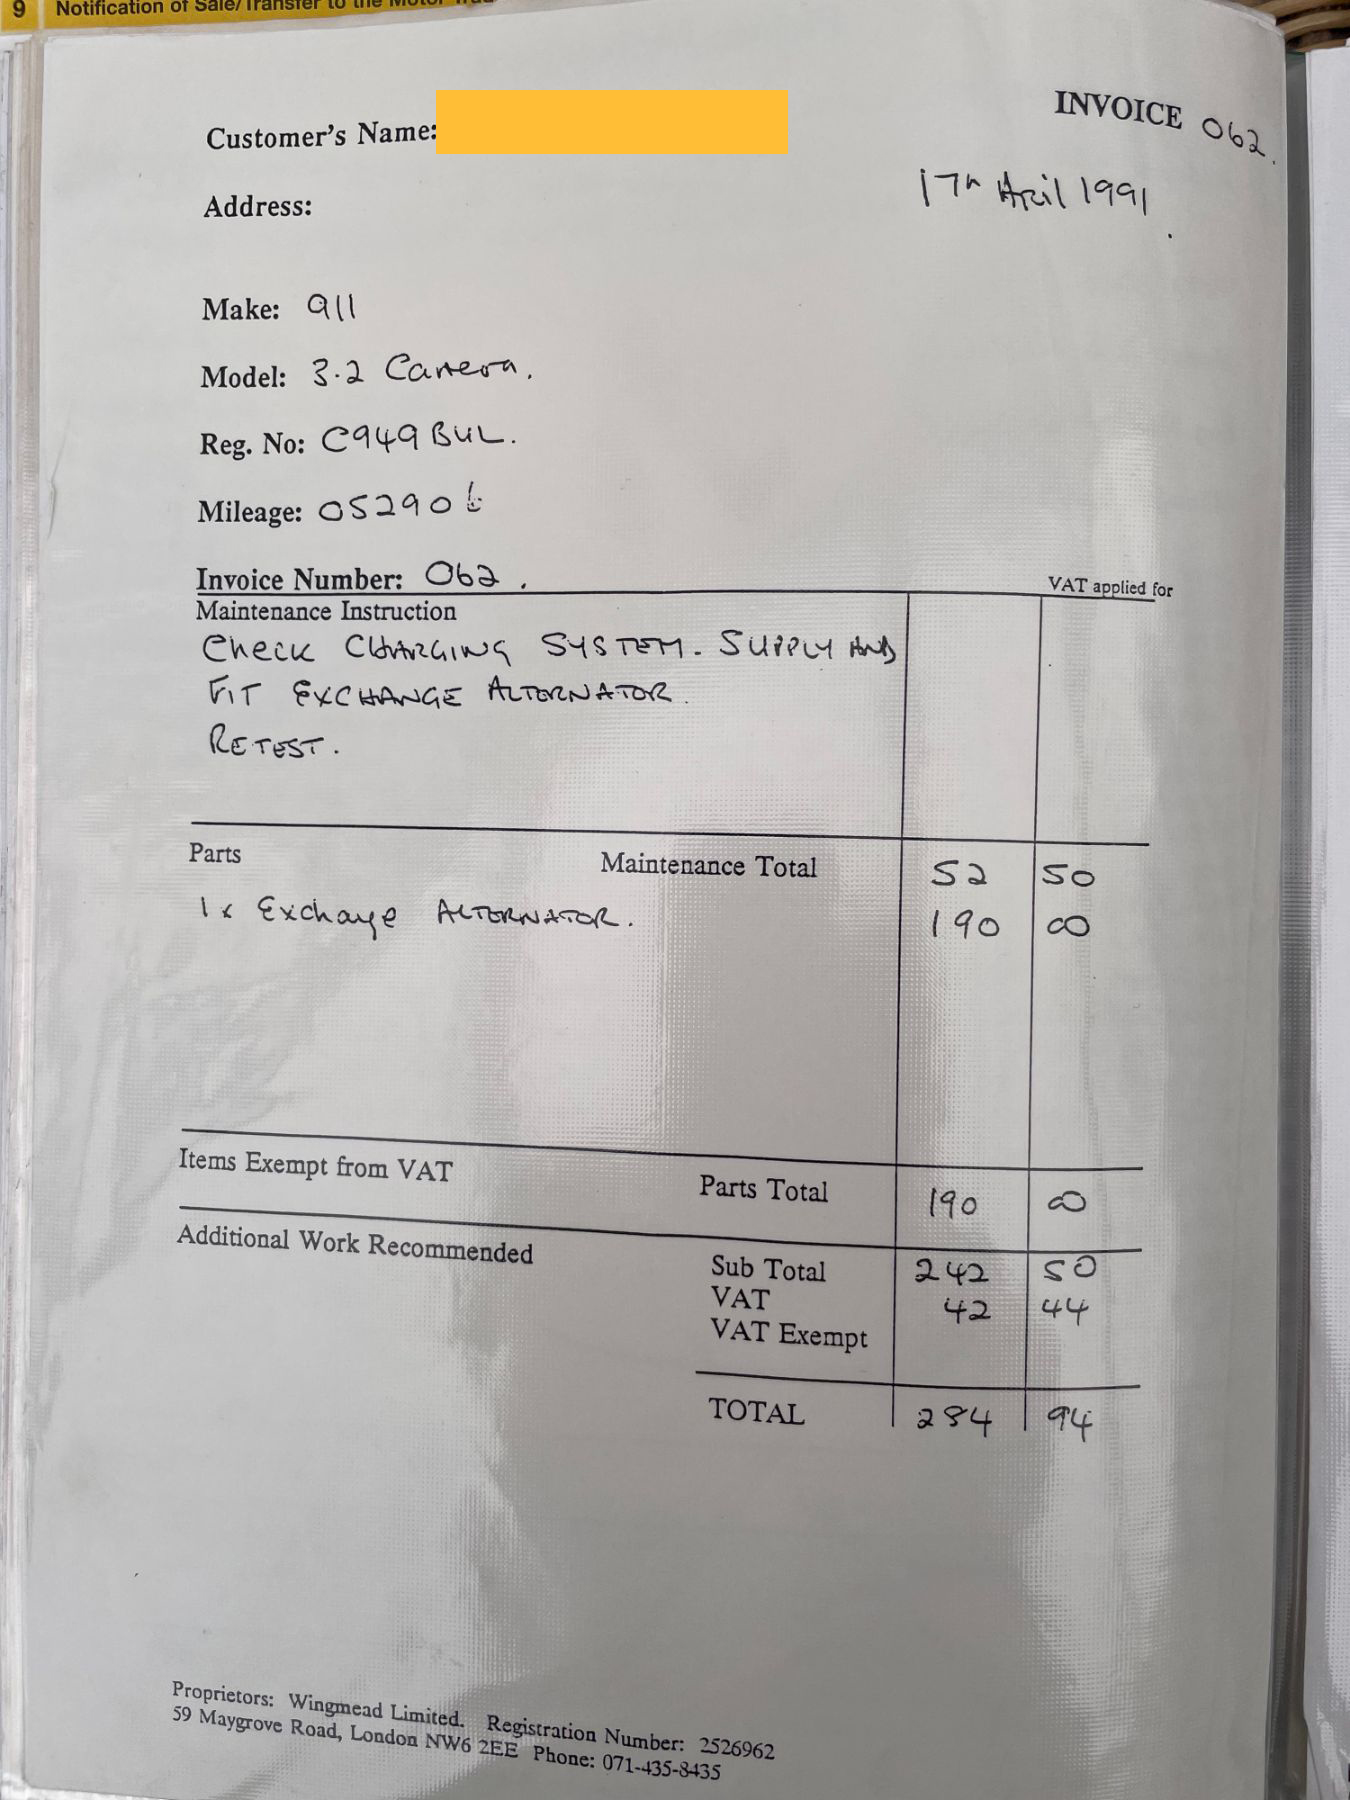 9 Notification of Sale/Transfer to the Motor
INVOICE 062.
Customer's Name:
17th April 1991
Address:
Make: 911
Model: 3.2 Carrera.
Reg. No: C949 BUL.
Mileage: 05290
Invoice Number: 062.
VAT applied for
Maintenance Instruction
CHECK CHARGING SYSTEM. SUPPLY AND
FIT EXCHANGE ALTERNATOR.
RETEST.
Parts Maintenance Total 52 50
1x Exchange ALTERNATOR. 190 00
Items Exempt from VAT
Parts Total 190 00
Additional Work Recommended
Sub Total 242 50
VAT 42 44
VAT Exempt
TOTAL 284 94
Proprietors: Wingmead Limited. Registration Number: 2526962
59 Maygrove Road, London NW6 2EE Phone: 071-435-8435